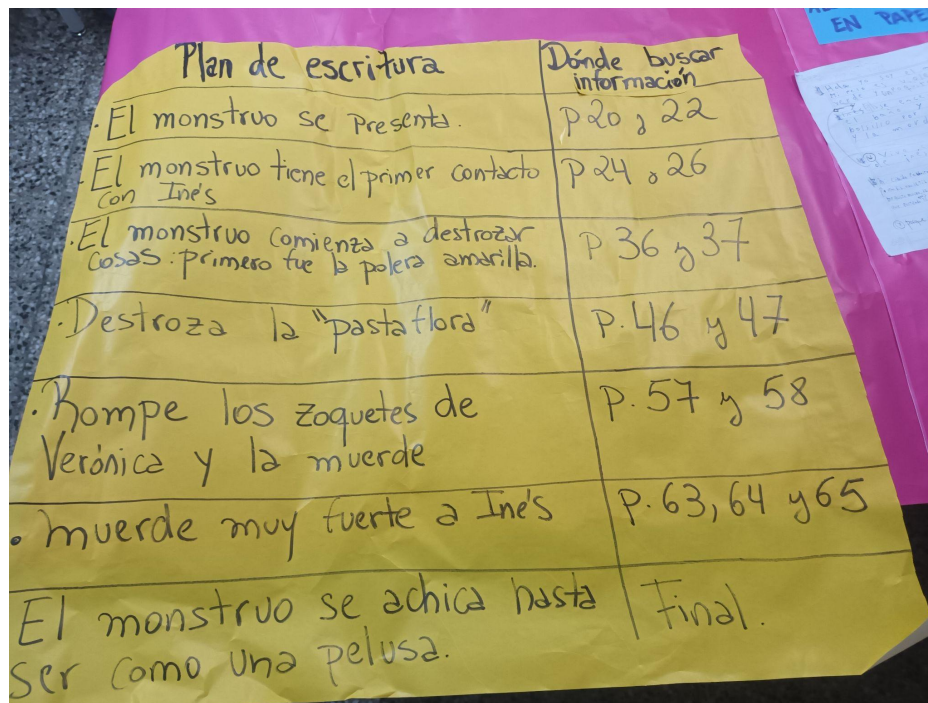 Plan de escritura
Dónde buscar
información
.El monstruo se presenta.
p 20 y 22
.El monstruo tiene el primer contacto
con Inés
p 24 y 26
.El monstruo comienza a destrozar
cosas: primero fue la polera amarilla.
P 36 y 37
.Destroza la "pastaflora"
P. 46 y 47
.Rompe los zoquetes de
Verónica y la muerde
P. 57 y 58
.muerde muy fuerte a Inés
P. 63, 64 y 65
El monstruo se achica hasta
ser como una pelusa.
Final.
EN PAPE